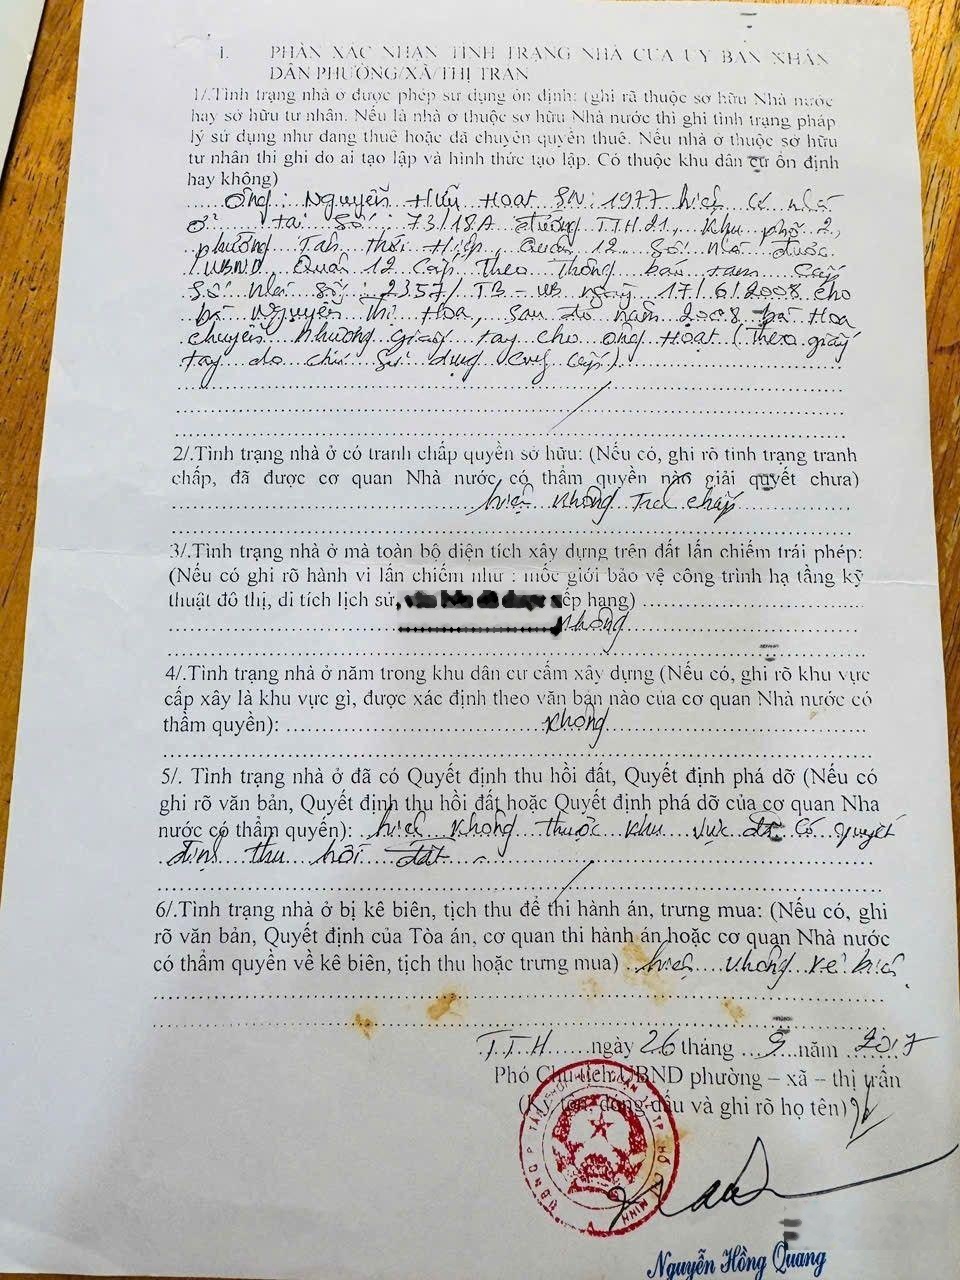 I. PHẦN XÁC NHẬN TÌNH TRẠNG NHÀ CỦA ỦY BAN NHÂN
DÂN PHƯỜNG/XÃ/THỊ TRẤN
1/.Tình trạng nhà ở được phép sử dụng ổn định: (ghi rã thuộc sơ hữu Nhà nước
hay sở hữu tư nhân. Nếu là nhà ở thuộc sơ hữu Nhà nước thì ghi tình trạng pháp
lý sử dụng như đang thuê hoặc đã chuyển quyền thuê. Nếu nhà ở thuộc sở hữu
tư nhân thì ghi do ai tạo lập và hình thức tạo lập. Có thuộc khu dân cư ổn định
hay không)
Ông: Nguyễn Hữu Hoạt SN: 1977 hiện có nhà
ở tại số: 73/18A đường TTH21, khu phố 2,
phường Tân Thới Hiệp, Quận 12. Số nhà được
UBND Quận 12 cấp theo Thông báo tạm cấp
số nhà số: 2357/TB-UB ngày 17/6/2008 cho
bà Nguyễn Thị Hoa, sau đó năm 2008 bà Hoa
chuyển nhượng giấy tay cho ông Hoạt (Theo giấy
tay do chủ sử dụng cung cấp)
2/.Tình trạng nhà ở có tranh chấp quyền sở hữu: (Nếu có, ghi rõ tình trạng tranh
chấp, đã được cơ quan Nhà nước có thẩm quyền nào giải quyết chưa)
hiện không tra chấp
3/.Tình trạng nhà ở mà toàn bộ diện tích xây dựng trên đất lấn chiếm trái phép:
(Nếu có ghi rõ hành vi lấn chiếm như : mốc giới bảo vệ công trình hạ tầng kỹ
thuật đô thị, di tích lịch sử, ếp hạng)
không
4/.Tình trạng nhà ở nằm trong khu dân cư cấm xây dựng (Nếu có, ghi rõ khu vực
cấp xây là khu vực gì, được xác định theo văn bản nào của cơ quan Nhà nước có
thẩm quyền): không
5/. Tình trạng nhà ở đã có Quyết định thu hồi đất, Quyết định phá dỡ (Nếu có
ghi rõ văn bản, Quyết định thu hồi đất hoặc Quyết định phá dỡ của cơ quan Nha
nước có thẩm quyền): hiện không thuộc khu vực đã có quyết
định thu hồi đất.
6/.Tình trạng nhà ở bị kê biên, tịch thu để thi hành án, trưng mua: (Nếu có, ghi
rõ văn bản, Quyết định của Tòa án, cơ quan thi hành án hoặc cơ quan Nhà nước
có thẩm quyền về kê biên, tịch thu hoặc trưng mua) hiện không kê biên
T.T.H ngày 26 tháng 9 năm 2017
Phó Chủ tịch UBND phường – xã – thị trấn
tên, đóng dấu và ghi rõ họ tên)
Nguyễn Hồng Quang